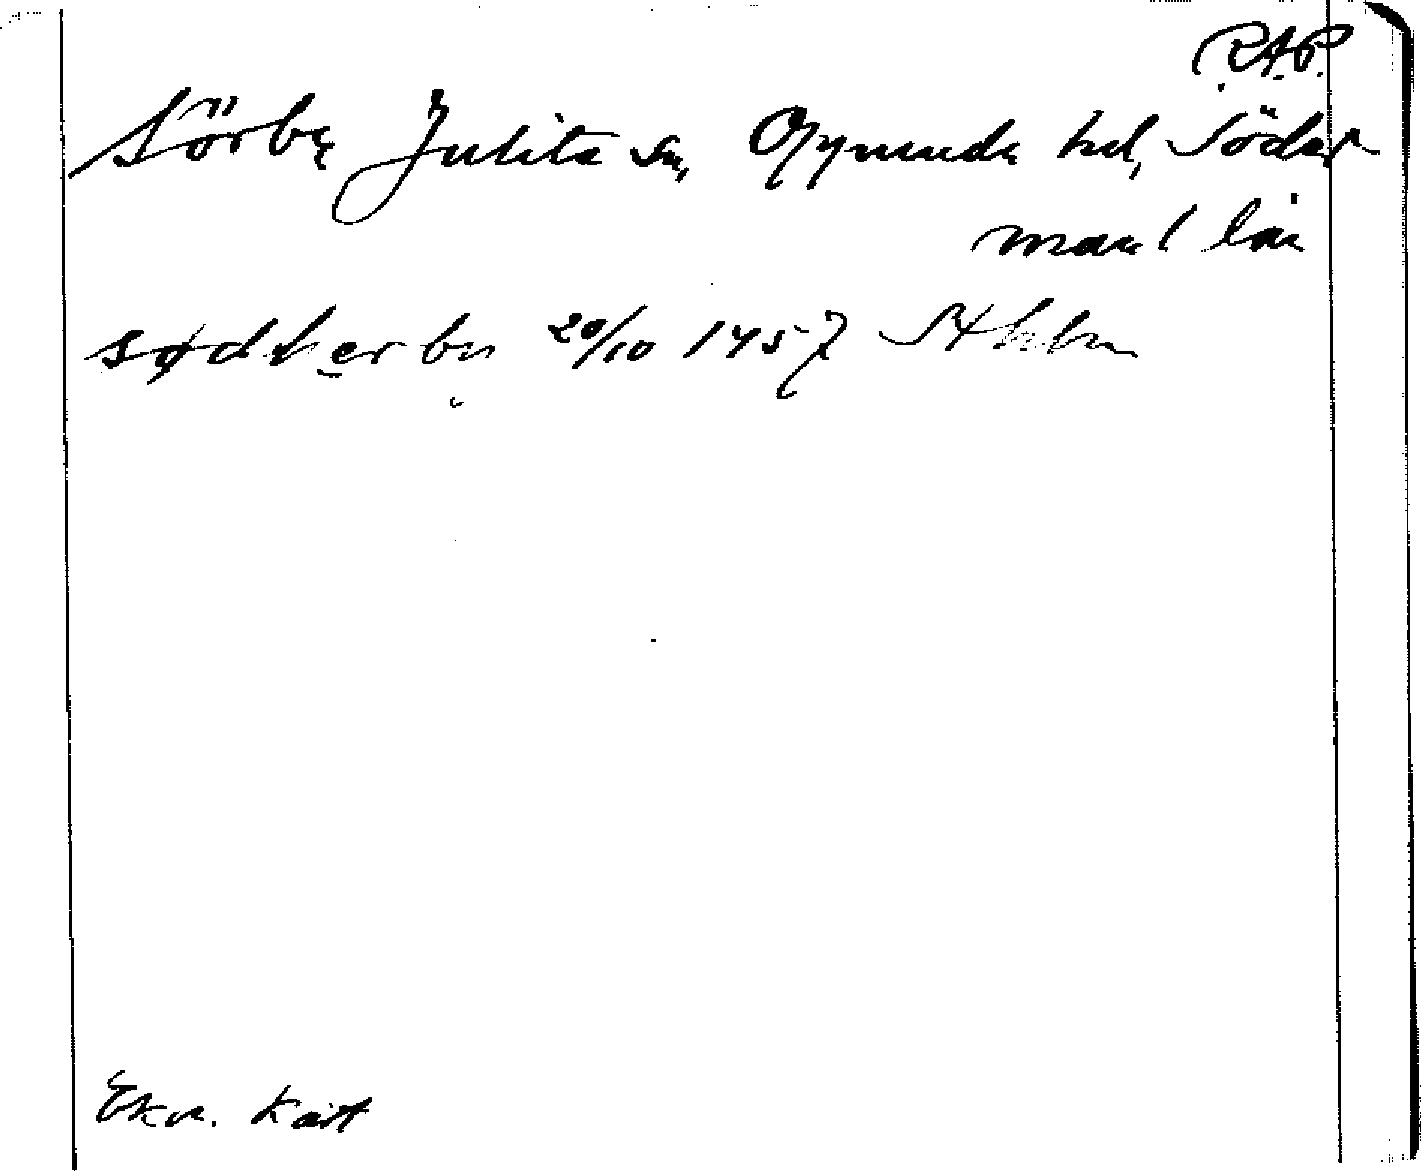 R.A.P.
Sörby Julita sn, Oppunda hd, Söder
manl län
sødherby 20/10 1457 Sthlm
Ekon. Kart